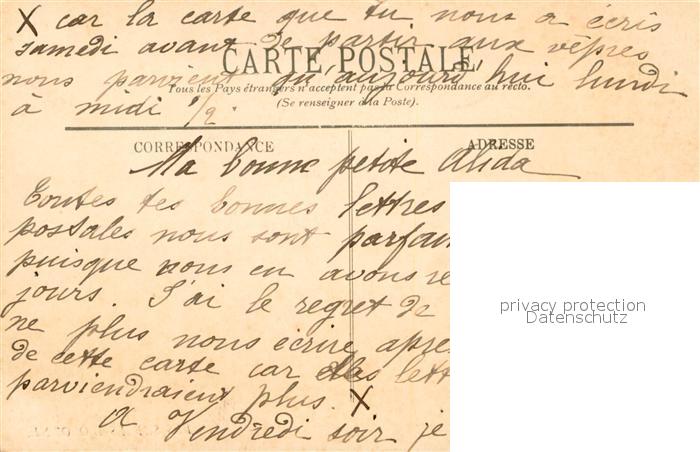 X car la carte que tu nous a écris
samedi avant de partir aux vêpres
CARTE POSTALE
nous parvient qu'aujourd'hui lundi
Tous les Pays étrangers n'acceptent pas la Correspondance au recto.
à midi 1/2
(Se renseigner à la Poste).
CORRESPONDANCE
ADRESSE
Ma bonne petite Alida
Toutes tes bonnes lettres
postales nous sont parfai
puisque nous en avons re
jours. J'ai le regret de
ne plus nous écrire apre
de cette carte car les lett
parviendraient plus. X
A Vendredi soir je
privacy protection
Datenschutz